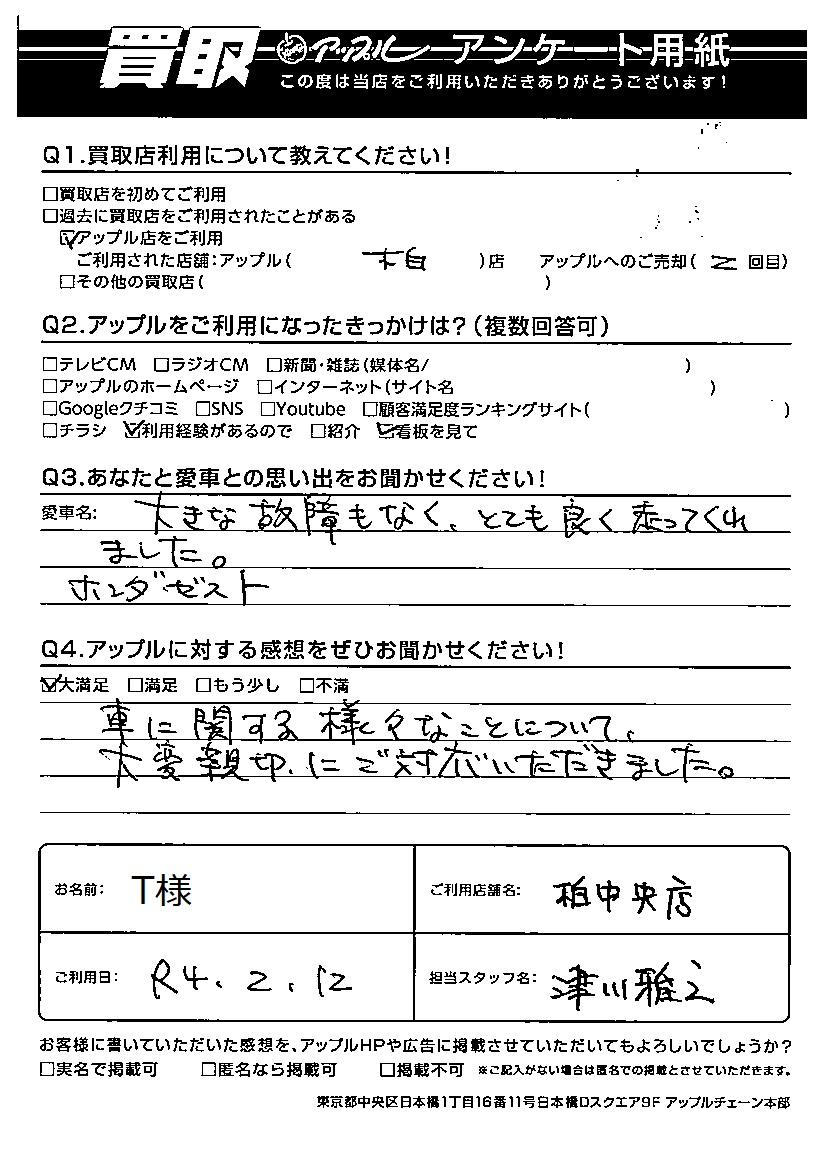 買取 アップル アンケート用紙
この度は当店をご利用いただきありがとうございます!
Q1.買取店利用について教えてください!
□買取店を初めてご利用
□過去に買取店をご利用されたことがある
☑アップル店をご利用
ご利用された店舗:アップル( 柏 )店 アップルへのご売却( 2 回目)
□その他の買取店( )
Q2.アップルをご利用になったきっかけは?(複数回答可)
□テレビCM □ラジオCM □新聞・雑誌(媒体名/ )
□アップルのホームページ □インターネット(サイト名 )
□Googleクチコミ □SNS □Youtube □顧客満足度ランキングサイト( )
□チラシ ☑利用経験があるので □紹介 ☑看板を見て
Q3.あなたと愛車との思い出をお聞かせください!
愛車名: 大きな故障もなく、とても良く走ってくれ
ました。
ホンダゼスト
Q4.アップルに対する感想をぜひお聞かせください!
☑大満足 □満足 □もう少し □不満
車に関する様々なことについて、
大変親切にご対応いただきました。
お名前: T様 ご利用店舗名: 柏中央店
ご利用日: R4.2.12 担当スタッフ名: 津川雅之
お客様に書いていただいた感想を、アップルHPや広告に掲載させていただいてもよろしいでしょうか?
□実名で掲載可 □匿名なら掲載可 □掲載不可 ※ご記入がない場合は匿名での掲載とさせていただきます。
東京都中央区日本橋1丁目16番11号日本橋Dスクエア9F アップルチェーン本部